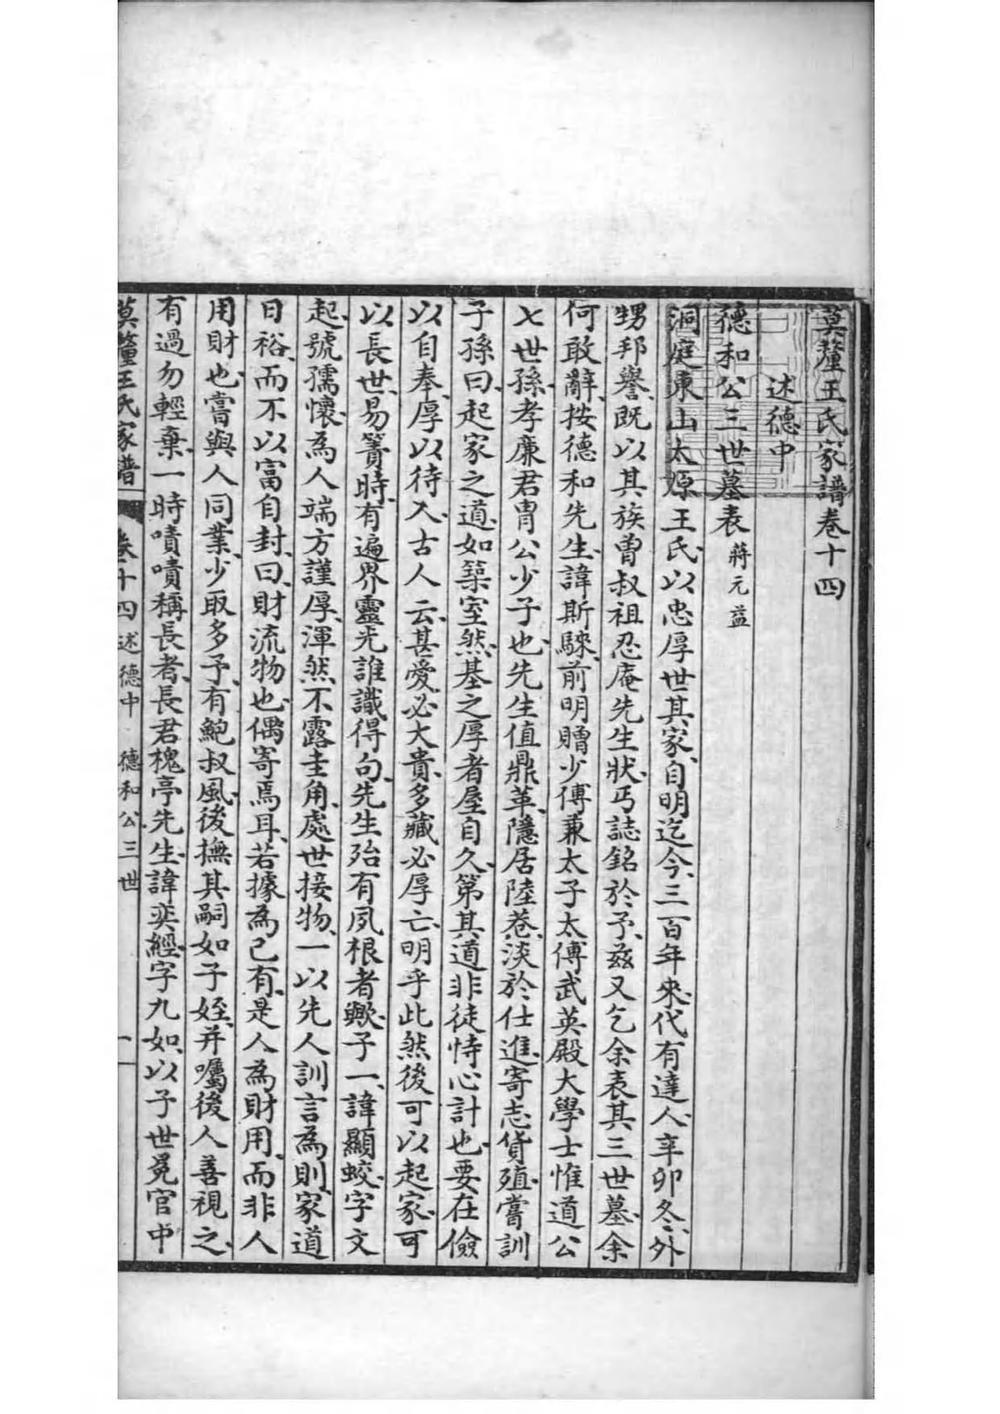 莫釐王氏家譜卷十四
述德中
德和公三世墓表 蔣元益
洞庭東山太原王氏以忠厚世其家自明迄今三百年來代有達人辛卯冬外
甥邦譽既以其族曾叔祖忍庵先生狀丐誌銘於予茲又乞余表其三世墓余
何敢辭按德和先生諱斯騋前明贈少傅兼太子太傅武英殿大學士惟道公
七世孫孝廉君胄公少子也先生值鼎革隱居陸巷淡於仕進寄志貨殖嘗訓
子孫曰起家之道如築室然基之厚者屋自久第其道非徒恃心計也要在儉
以自奉厚以待人古人云甚愛必大費多藏必厚亡明乎此然後可以起家可
以長世易簀時有遍界靈光誰識得句先生殆有夙根者歟子一諱顯蛟字文
起號孺懷為人端方謹厚渾然不露圭角處世接物一以先人訓言為則家道
日裕而不以富自封曰財流物也偶寄焉耳若據為己有是人為財用而非人
用財也嘗與人同業少取多予有鮑叔風後撫其嗣如子姪并囑後人善視之
有過勿輕棄一時嘖嘖稱長者長君槐亭先生諱奕經字九如以子世冕官中
莫釐王氏家譜 卷十四 述德中 德和公三世 一